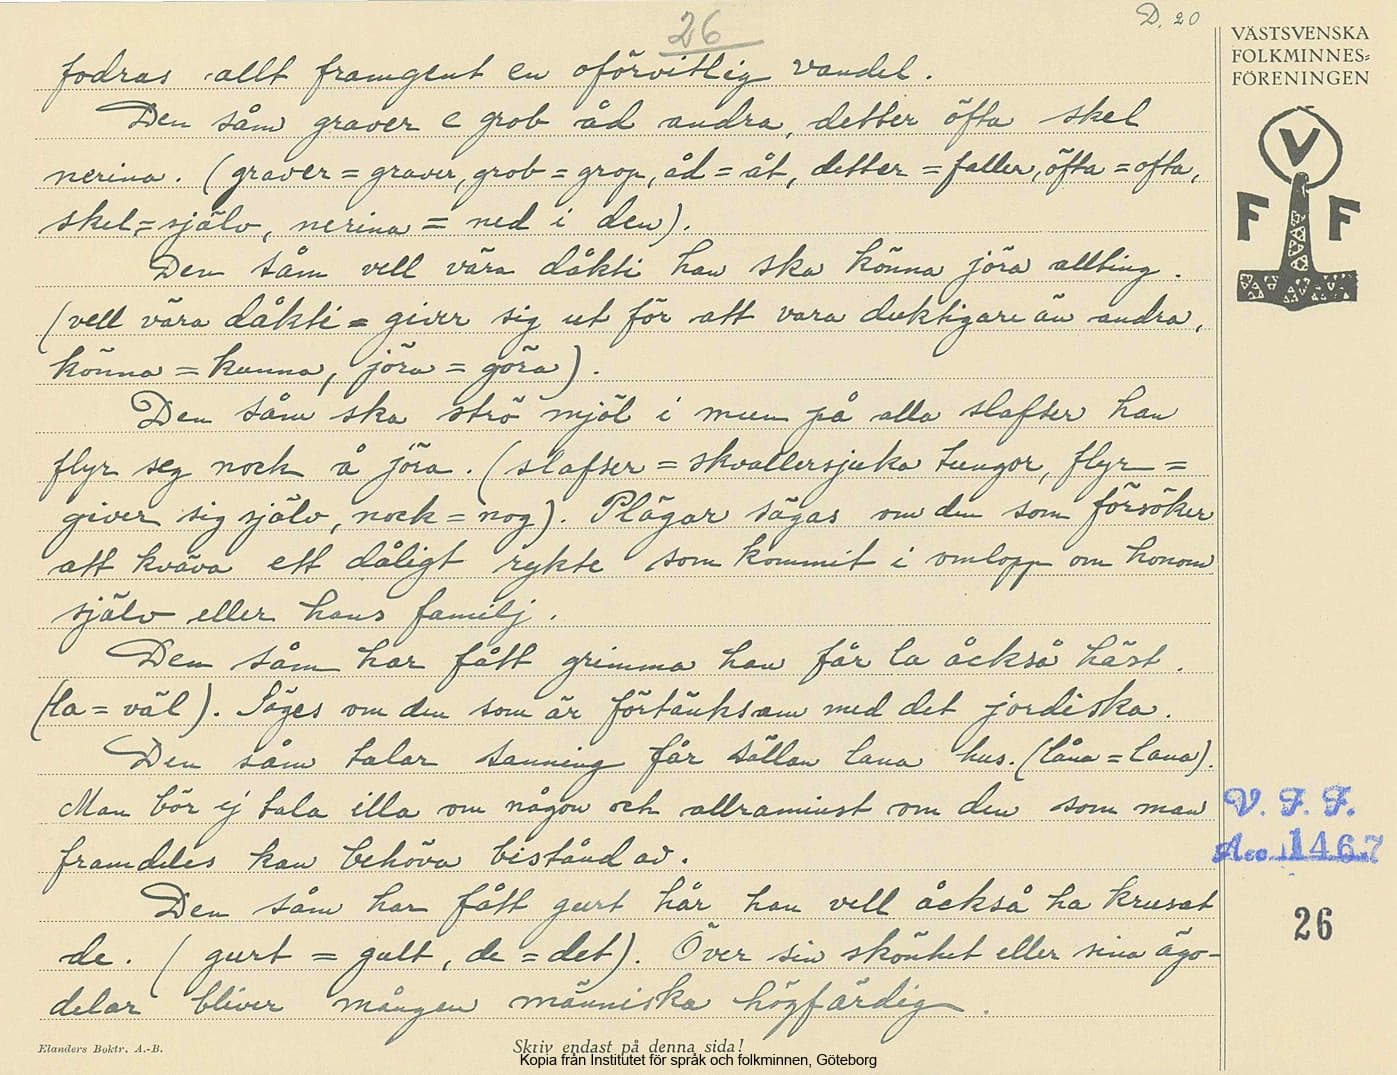 26
D. 20
VÄSTSVENSKA
FOLKMINNES=
FÖRENINGEN
V
F F
fodras allt framgent en oförvitlig vandel.
Den såm graver e grob åd andra, detter öfta skel
nerina. (graver = graver, grob = grop, åd = åt, detter = faller, öfta = ofta,
skel = själv, nerina = ned i den).
Den såm vell vära dåkti han ska könna jöra allting.
(vell vära dåkti = giver sig ut för att vara duktigare än andra,
könna = kunna, jöra = göra).
Den såm ska strö mjöl i mun på alla slafser han
flyr seg nock å jöra. (slafser = skvallersjuka tungor, flyr =
giver sig själv, nock = nog). Plägar sägas om den som försöker
att kväva ett dåligt rykte som kommit i omlopp om honom
själv eller hans familj.
Den såm har fått grimma han får la åckså häst.
(la = väl). Säges om den som är förtänksam med det jordiska.
Den såm talar sanning får sällan lana hus. (låna = lana).
Man bör ej tala illa om någon och allraminst om den som man
framdeles kan behöva bistånd av.
Den såm har fått gurt hår han vell åckså ha krusat
de. (gurt = gult, de = det). Över sin skönhet eller sina ägo-
delar bliver mången människa högfärdig.
V. F. F.
Acc. 1467
26
Elanders Boktr. A.-B.
Skriv endast på denna sida!
Kopia från Institutet för språk och folkminnen, Göteborg